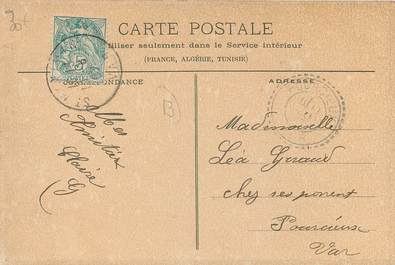 30f
CARTE POSTALE
utiliser seulement dans le Service intérieur
(FRANCE, ALGÉRIE, TUNISIE)
CORRESPONDANCE
ADRESSE
Mes
Amitiés
Claire
G
B
Mademoiselle
Léa Geraud
chez ses parent
Pourcieux
Var